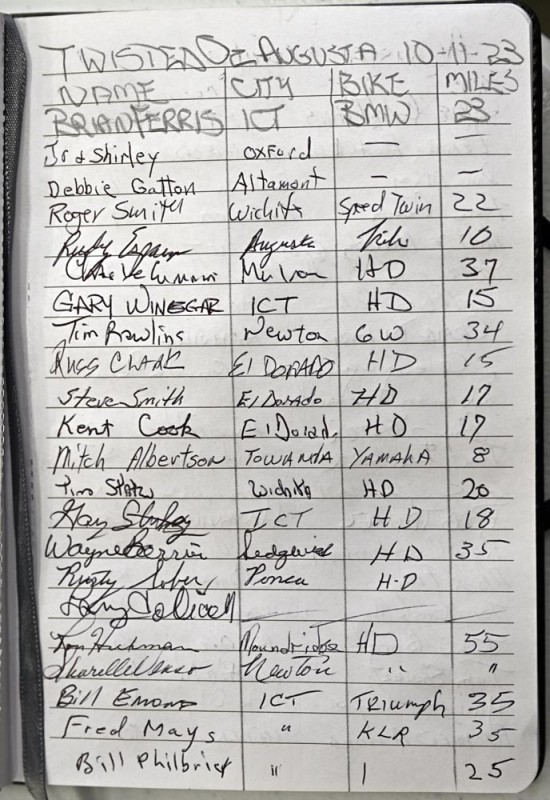 TWISTED OZ AUGUSTA 10-11-23
NAME CITY BIKE MILES
BRIAN FERRIS ICT BMW 23
Jr & Shirley OXFORD — —
Debbie Gatton Altamont — —
Roger Smith Wichita Speed Twin 22
Rudy Augusta 10
Mulvan HD 37
GARY WINEGAR ICT HD 15
Tim Rawlins Newton GW 34
RUSS CLARK El DORADO HD 15
Steve Smith El Dorado HD 17
Kent Cook El Dorad. HD 17
Mitch Albertson TOWANDA YAMAHA 8
Tim Wichita HD 20
Gary ICT HD 18
Wayne Sedgwick HD 35
Rusty Ponca H-D
Larry
Hickman Moundridge HD 55
Newton " "
Bill Emond ICT Triumph 35
Fred Mays " KLR 35
Bill Philbrick " 1 25